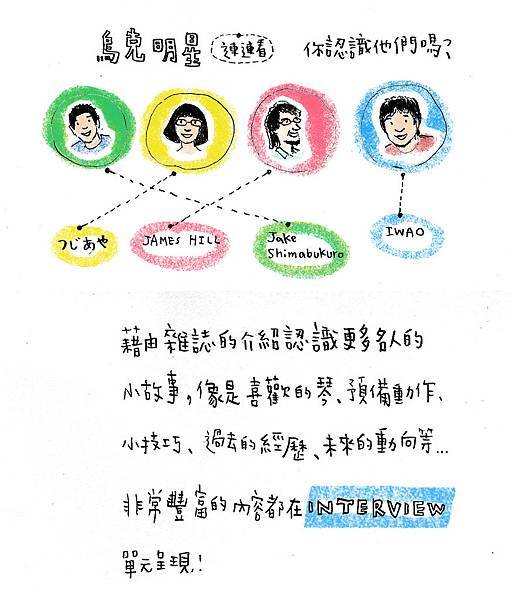 烏克明星 連連看 你認識他們嗎?
つじあや JAMES HILL Jake Shimabukuro IWAO
藉由雜誌的介紹認識更多名人的
小故事,像是喜歡的琴、預備動作、
小技巧、過去的經歷、未來的動向等...
非常豐富的內容都在INTERVIEW
單元呈現!